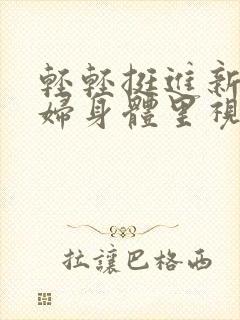 輕輕挺進新
婦身體里視
拉讓巴格西